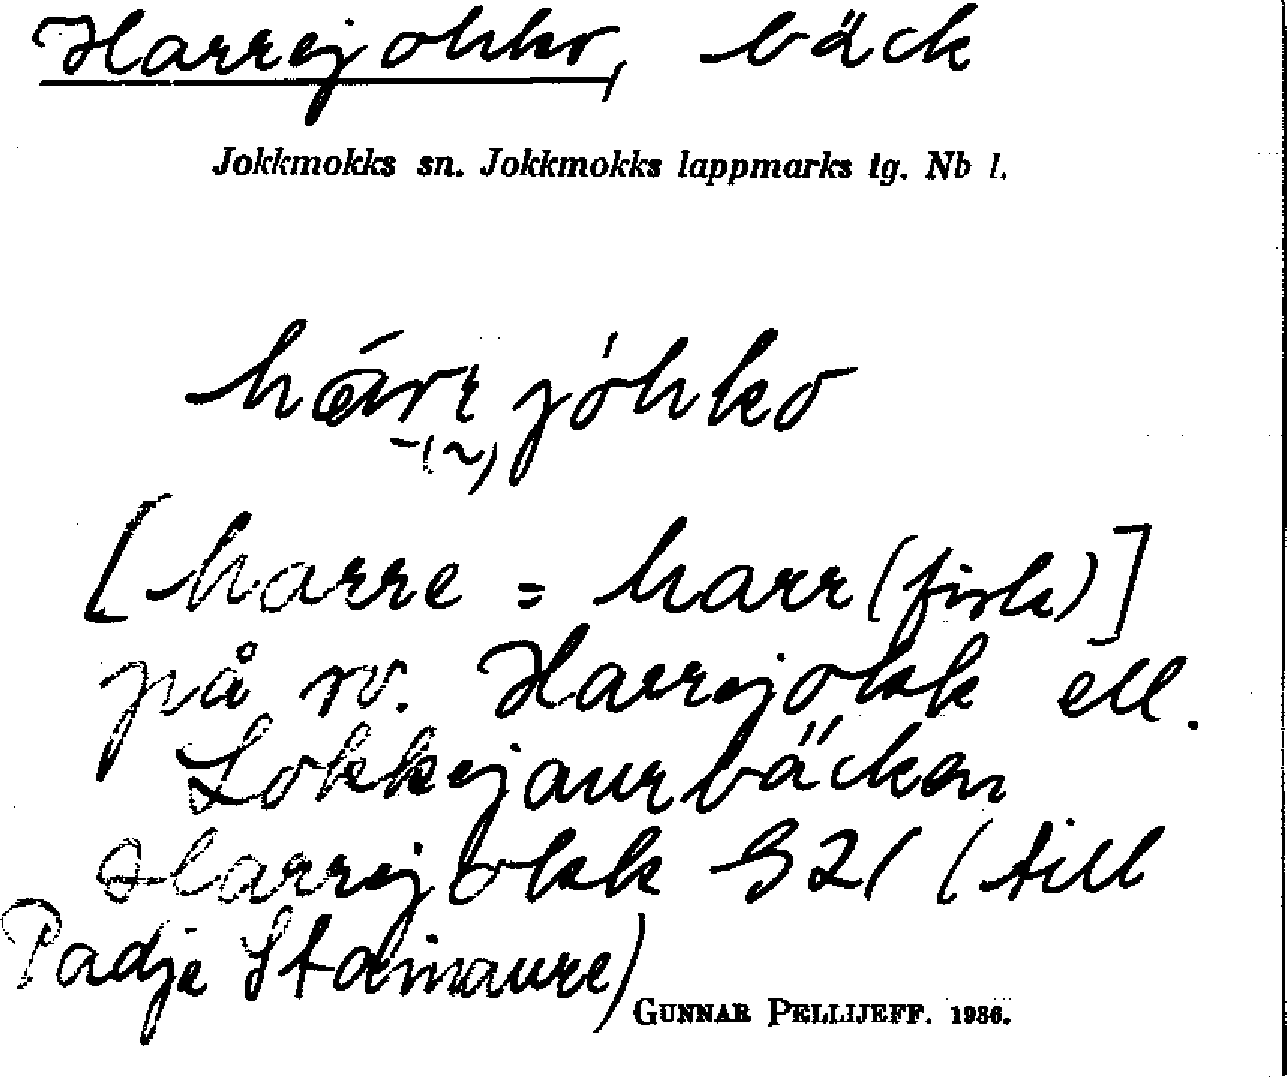 Harrejohko, bäck
Jokkmokks sn. Jokkmokks lappmarks tg. Nb l.
hárrjóhko
[harre = harr (fisk)]
på sv. Harrejokk ell.
Lokkejaurbäcken
Harrejokk S21 (till
Padje Stainaure)
GUNNAR PELLIJEFF. 1936.